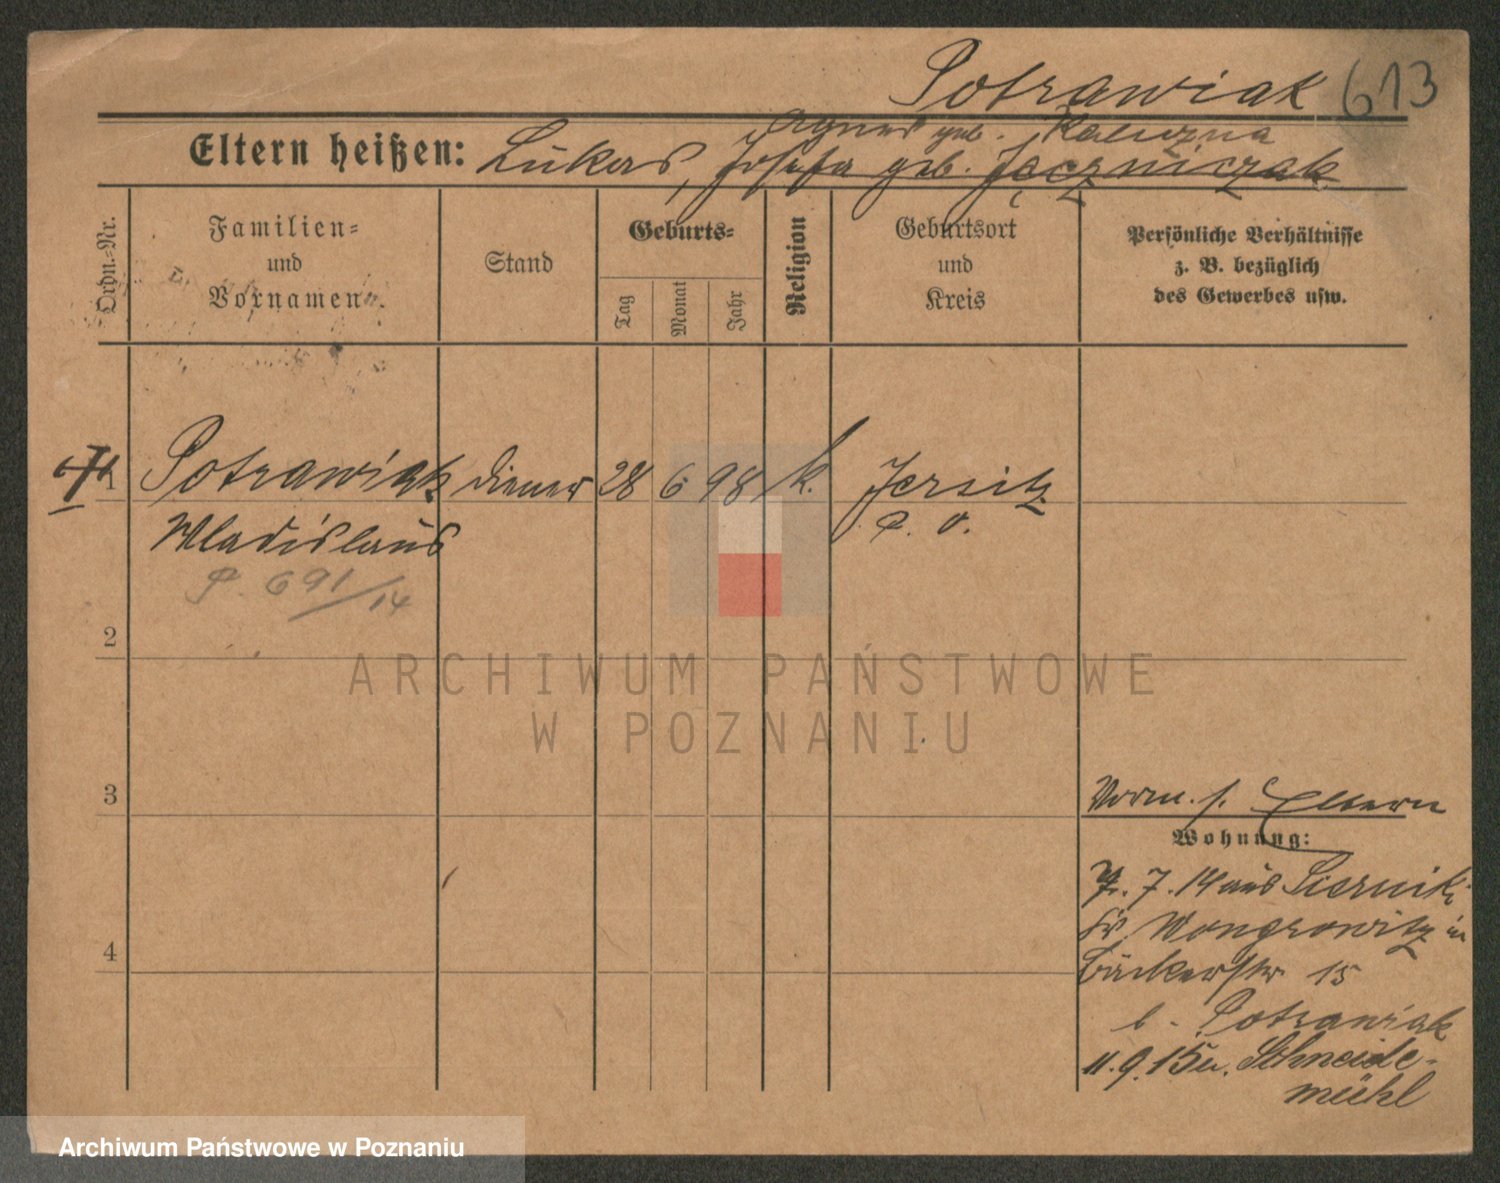 Potrawiak 613
Agnes geb. Kaluzna
Eltern heißen: Lukas, Josefa geb. Jęczniczak
Ordn.-Nr.
Familien-
und
Vornamen
Stand
Geburts-
Tag
Monat
Jahr
Religion
Geburtsort
und
Kreis
Persönliche Verhältnisse
z. B. bezüglich
des Gewerbes usw.
1 Potrawiak diener 28 6 98 k. Jersitz
Wladislaus P. O.
P. 691/14
2
ARCHIWUM PAŃSTWOWE
W POZNANIU
3
Vorm. s. Eltern
Wohnung:
7. 14 aus Siernik
Kr. Wongrowitz in
Bäckerstr 15
b. Potrawiak
4
11.9.15 n. Schneide-
mühl
Archiwum Państwowe w Poznaniu